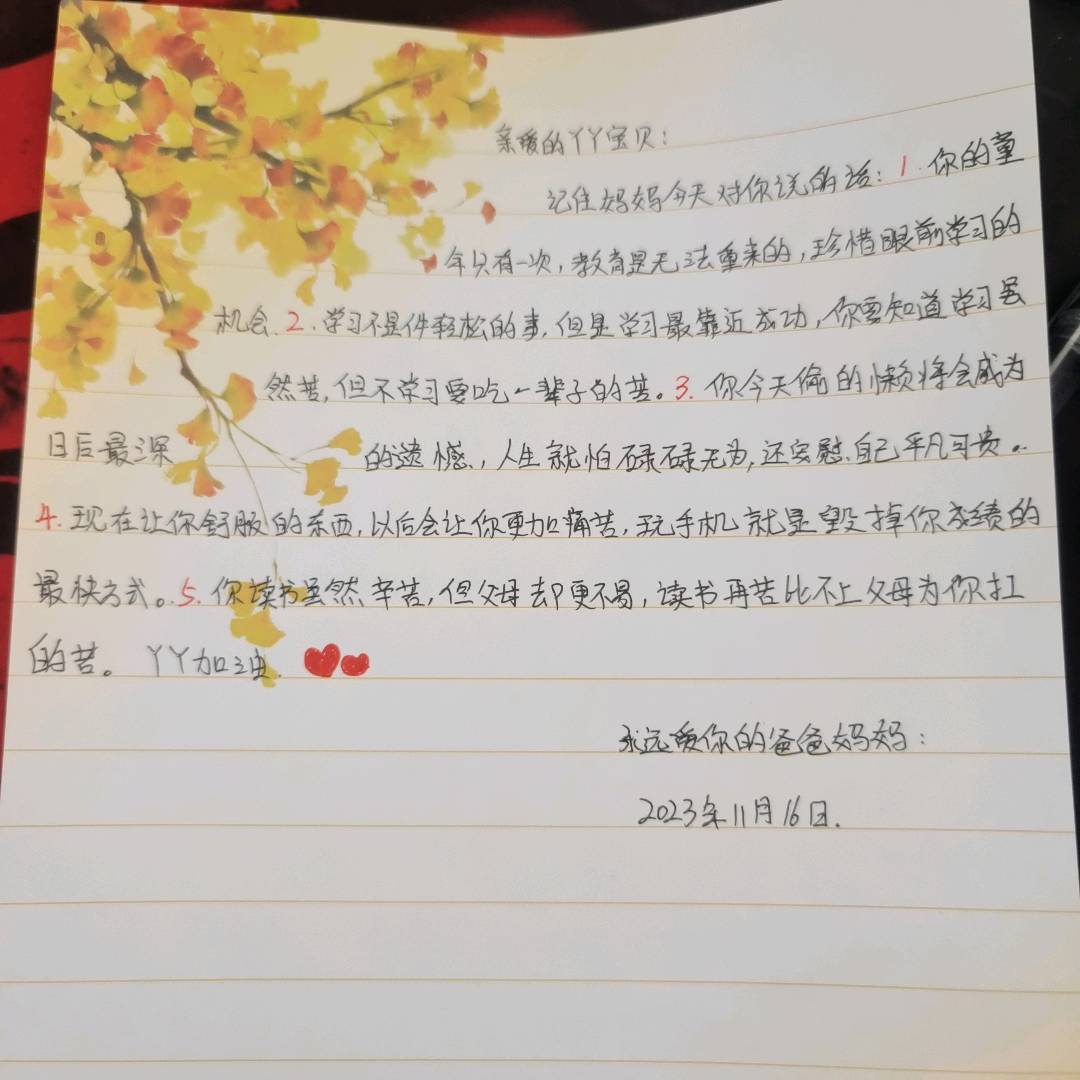 亲爱的丫丫宝贝：
记住妈妈今天对你说的话：1.你的童
年只有一次，教育是无法重来的，珍惜眼前学习的
机会.2.学习不是件轻松的事，但是学习最靠近成功，你要知道学习虽
然苦，但不学习要吃一辈子的苦。3.你今天偷的懒将会成为
日后最深的遗憾，人生就怕碌碌无为，还安慰自己平凡可贵。
4.现在让你舒服的东西，以后会让你更加痛苦，玩手机就是毁掉你成绩的
最快方式。5.你读书虽然辛苦，但父母却更不易，读书再苦比不上父母为你扛
的苦。丫丫加油.
永远爱你的爸爸妈妈：
2023年11月16日.